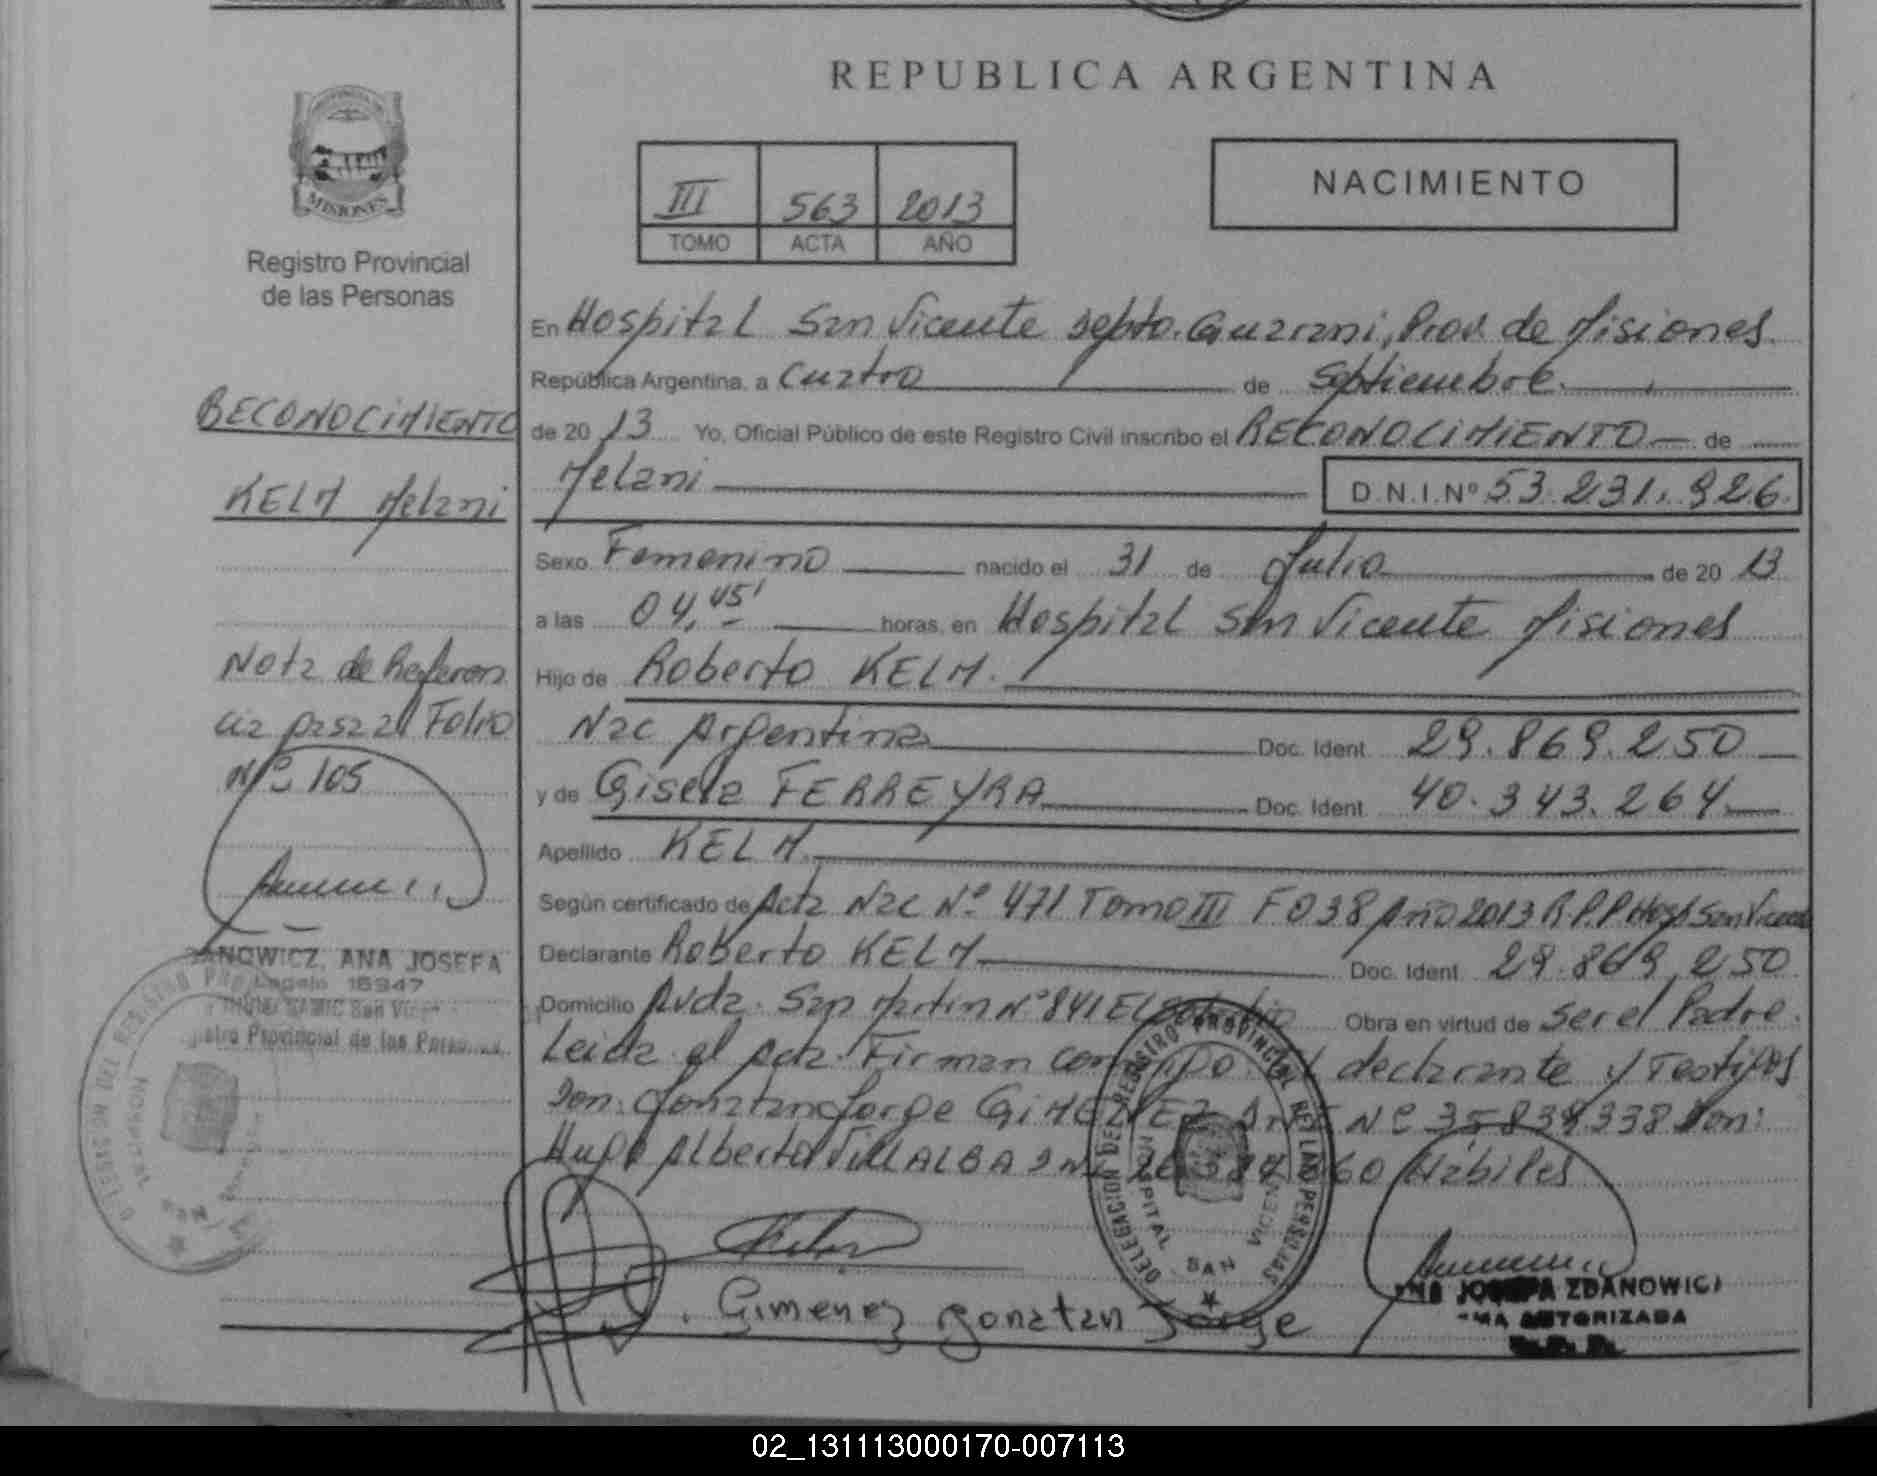 REPUBLICA ARGENTINA
MISIONES
Registro Provincial
de las Personas
III 563 2013
TOMO ACTA AÑO
NACIMIENTO
RECONOCIMIENTO
KELM Melani
Nota de Referen
cia pasa al Folio
Nº 105
ANOWICZ, ANA JOSEFA
Legajo 16947
SAMIC San
Registro Provincial de las Personas
En Hospital San Vicente Depto. Guarani, Prov. de Misiones.
República Argentina, a Cuatro de Septiembre.
de 20 13 Yo, Oficial Público de este Registro Civil inscribo el RECONOCIMIENTO de
Melani D.N.I.Nº 53.231.926
Sexo Femenino nacido el 31 de Julio de 20 13
a las 04,45' horas, en Hospital San Vicente Misiones
Hijo de Roberto KELM.
Nac Argentina Doc. Ident. 29.869.250
y de Gisela FERREYRA Doc. Ident. 40.343.264
Apellido KELM.
Según certificado de Acta Nac Nº 471 Tomo III Fº 38 Año 2013 R.P.P Hosp San Vicente
Declarante Roberto KELM Doc. Ident. 29.869.250
Domicilio Avda. San Martin Nº 841 El Obra en virtud de ser el Padre.
Leida el Acta. Firman conmigo el declarante y Testigos
Don: Jonatan Jorge GIMENEZ DNI Nº 35.839.338 Don:
Hugo Alberto VILLALBA DNI 60 Hábiles
DELEGACION DEL REGISTRO PROVINCIAL DE LAS PERSONAS
HOSPITAL SAN VICENTE
Gimenez Jonatan Jorge
ANA JOSEFA ZDANOWICZ
FIRMA AUTORIZADA
R.P.P.
02_131113000170-007113